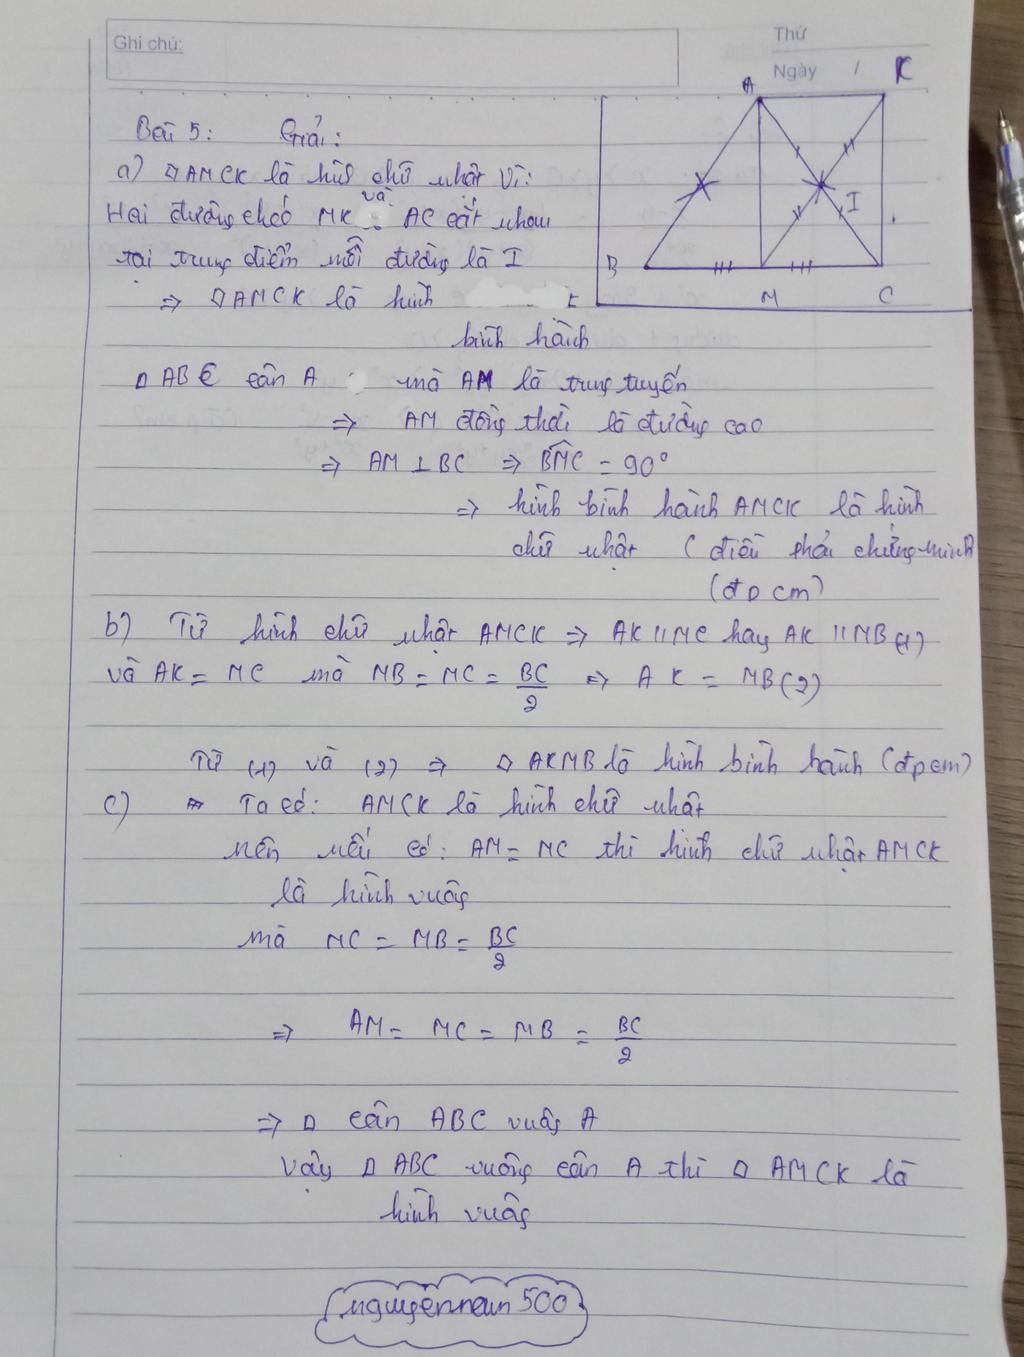 Ghi chú:
Thứ
Ngày /
A K
I
B M C
E
Bài 5: Giải:
a) ◇AMCK là hình chữ nhật Vì:
Hai đường chéo MK và AC cắt nhau
tại trung điểm mỗi đường là I
⇒ ◇AMCK là hình
bình hành
△ ABC cân A mà AM là trung tuyến
⇒ AM đồng thời là đường cao
⇒ AM ⊥ BC ⇒ BMC = 90°
⇒ hình bình hành AMCK là hình
chữ nhật (điều phải chứng minh)
(đpcm)
b) Từ hình chữ nhật AMCK ⇒ AK // MC hay AK // MB (1)
và AK = MC mà MB = MC = BC/2 ⇒ AK = MB (2)
Từ (1) và (2) ⇒ ◇ AKMB là hình bình hành (đpcm)
c) Ta có: AMCK là hình chữ nhật
nên nếu có: AM = MC thì hình chữ nhật AMCK
là hình vuông
mà MC = MB = BC/2
⇒ AM = MC = MB = BC/2
⇒ △ cân ABC vuông A
Vậy △ ABC vuông cân A thì ◇ AMCK là
hình vuông
nguyennam500